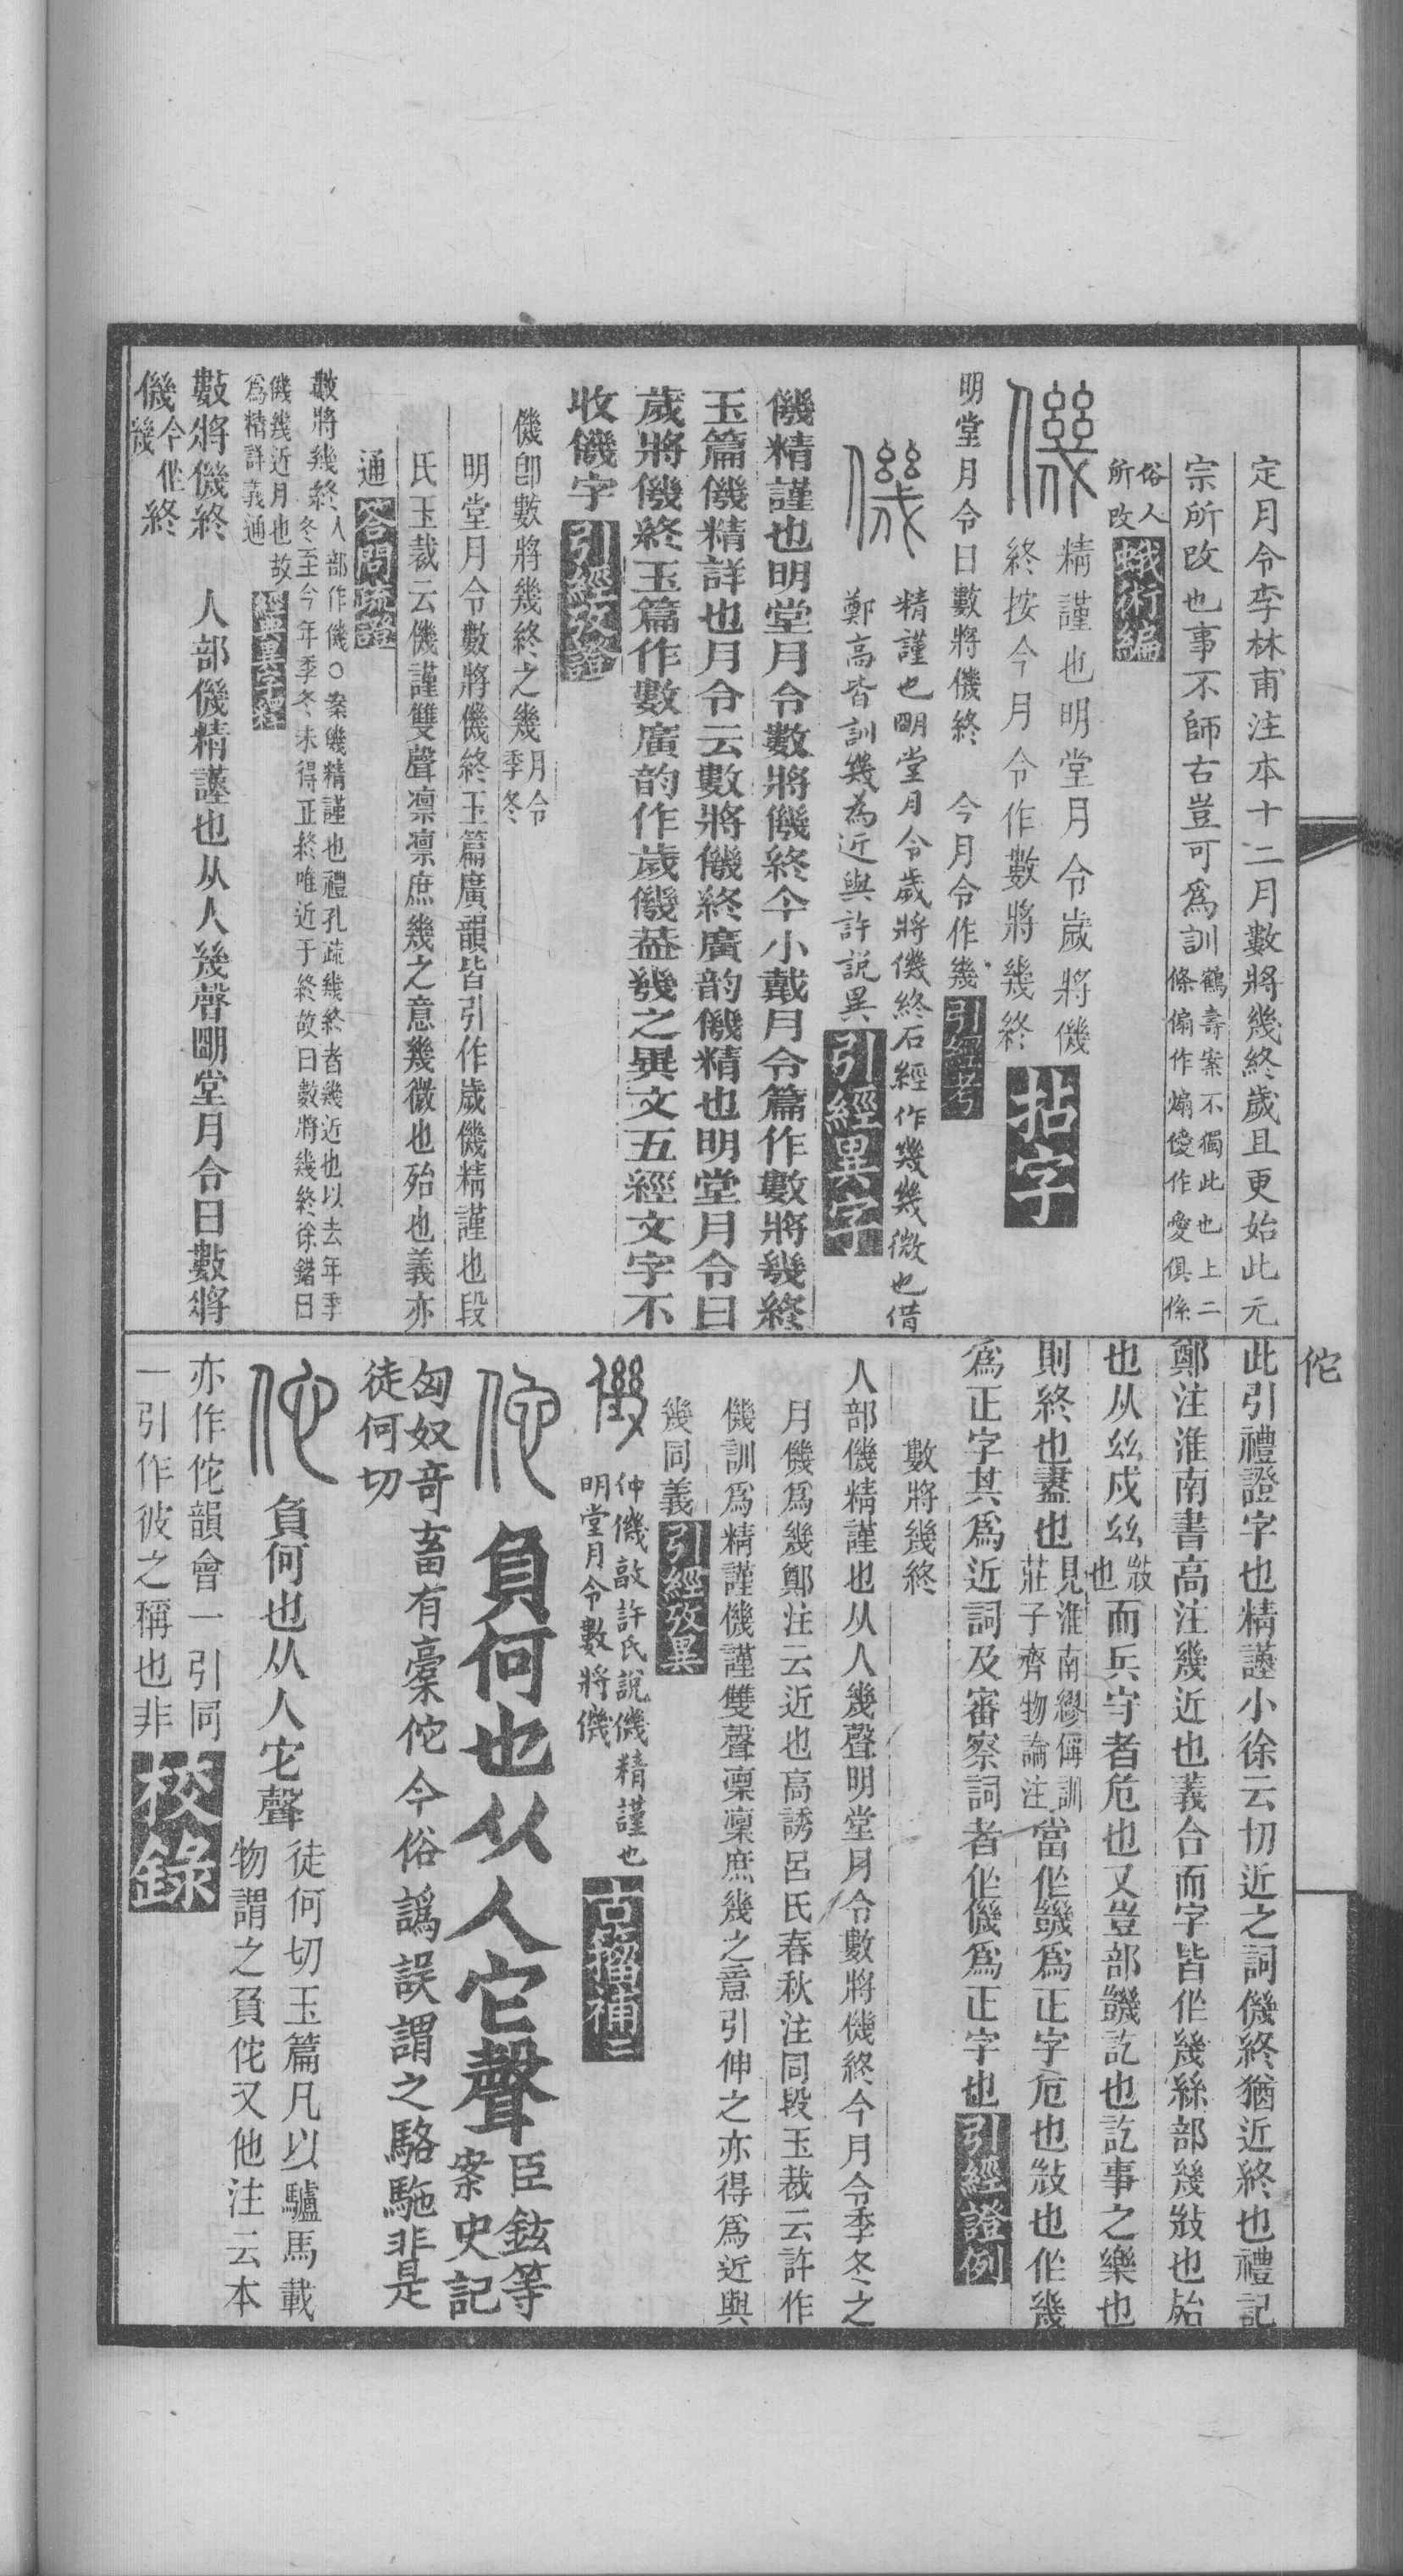 定月令李林甫注本十二月數將幾終歲且更始此元
宗所改也事不師古豈可爲訓
鶴壽案不獨此也上二
條偏作煽僾作愛俱係
俗人
所改
蛾術編
僟
精謹也明堂月令歲將僟
終按今月令作數將幾終
拈字
明堂月令曰數將僟終　今月令作幾
引經考
僟
精謹也明堂月令歲將僟終石經作幾幾微也借
鄭高皆訓幾為近與許説異
引經異字
僟精謹也明堂月令數將僟終今小戴月令篇作數將幾終
玉篇僟精詳也月令云數將僟終廣韵僟精也明堂月令曰
歲將僟終玉篇作數廣韵作歲僟葢幾之異文五經文字不
收僟字
引經攷證
僟卽數將幾終之幾
月令
季冬
明堂月令數將僟終玉篇廣韻皆引作歲僟精謹也段
氏玉裁云僟謹雙聲凛凛庶幾之意幾微也殆也義亦
通
答問疏證
數將幾終
人部作僟○案僟精謹也禮孔疏幾終者幾近也以去年季
冬至今年季冬未得正終唯近于終故曰數將幾終徐鍇曰
僟幾近月也故
爲精詳義通
經典異字釋
數將僟終　人部僟精謹也从人幾聲朙堂月令曰數將
僟
今作
幾
終
此引禮證字也精謹小徐云切近之詞僟終猶近終也禮記
鄭注淮南書高注幾近也義合而字皆作幾絲部幾㱾也殆
也从𢆶戍𢆶
㱾
也
而兵守者危也又豈部䡋訖也訖事之樂也
則終也盡也
見淮南繆偁訓
莊子齊物論注
當作䡋爲正字危也㱾也作幾
爲正字其爲近詞及審察詞者作僟爲正字也
引經證例
數將幾終
人部僟精謹也从人幾聲明堂月令數將僟終今月令季冬之
月僟爲幾鄭注云近也高誘呂氏春秋注同段玉裁云許作
僟訓爲精謹僟謹雙聲稟稟庶幾之意引伸之亦得爲近與
幾同義
引經攷異
僟
仲僟敦許氏說僟精謹也
明堂月令數將僟
古籀補二
佗
負何也从人它聲
臣鉉等
案史記
匈奴奇畜有槖佗今俗譌誤謂之駱駞非是
徒何切
佗
負何也从人它聲
徒何切玉篇凡以驢馬載
物謂之負佗又他注云本
亦作佗韻會一引同
一引作彼之稱也非
校錄
佗